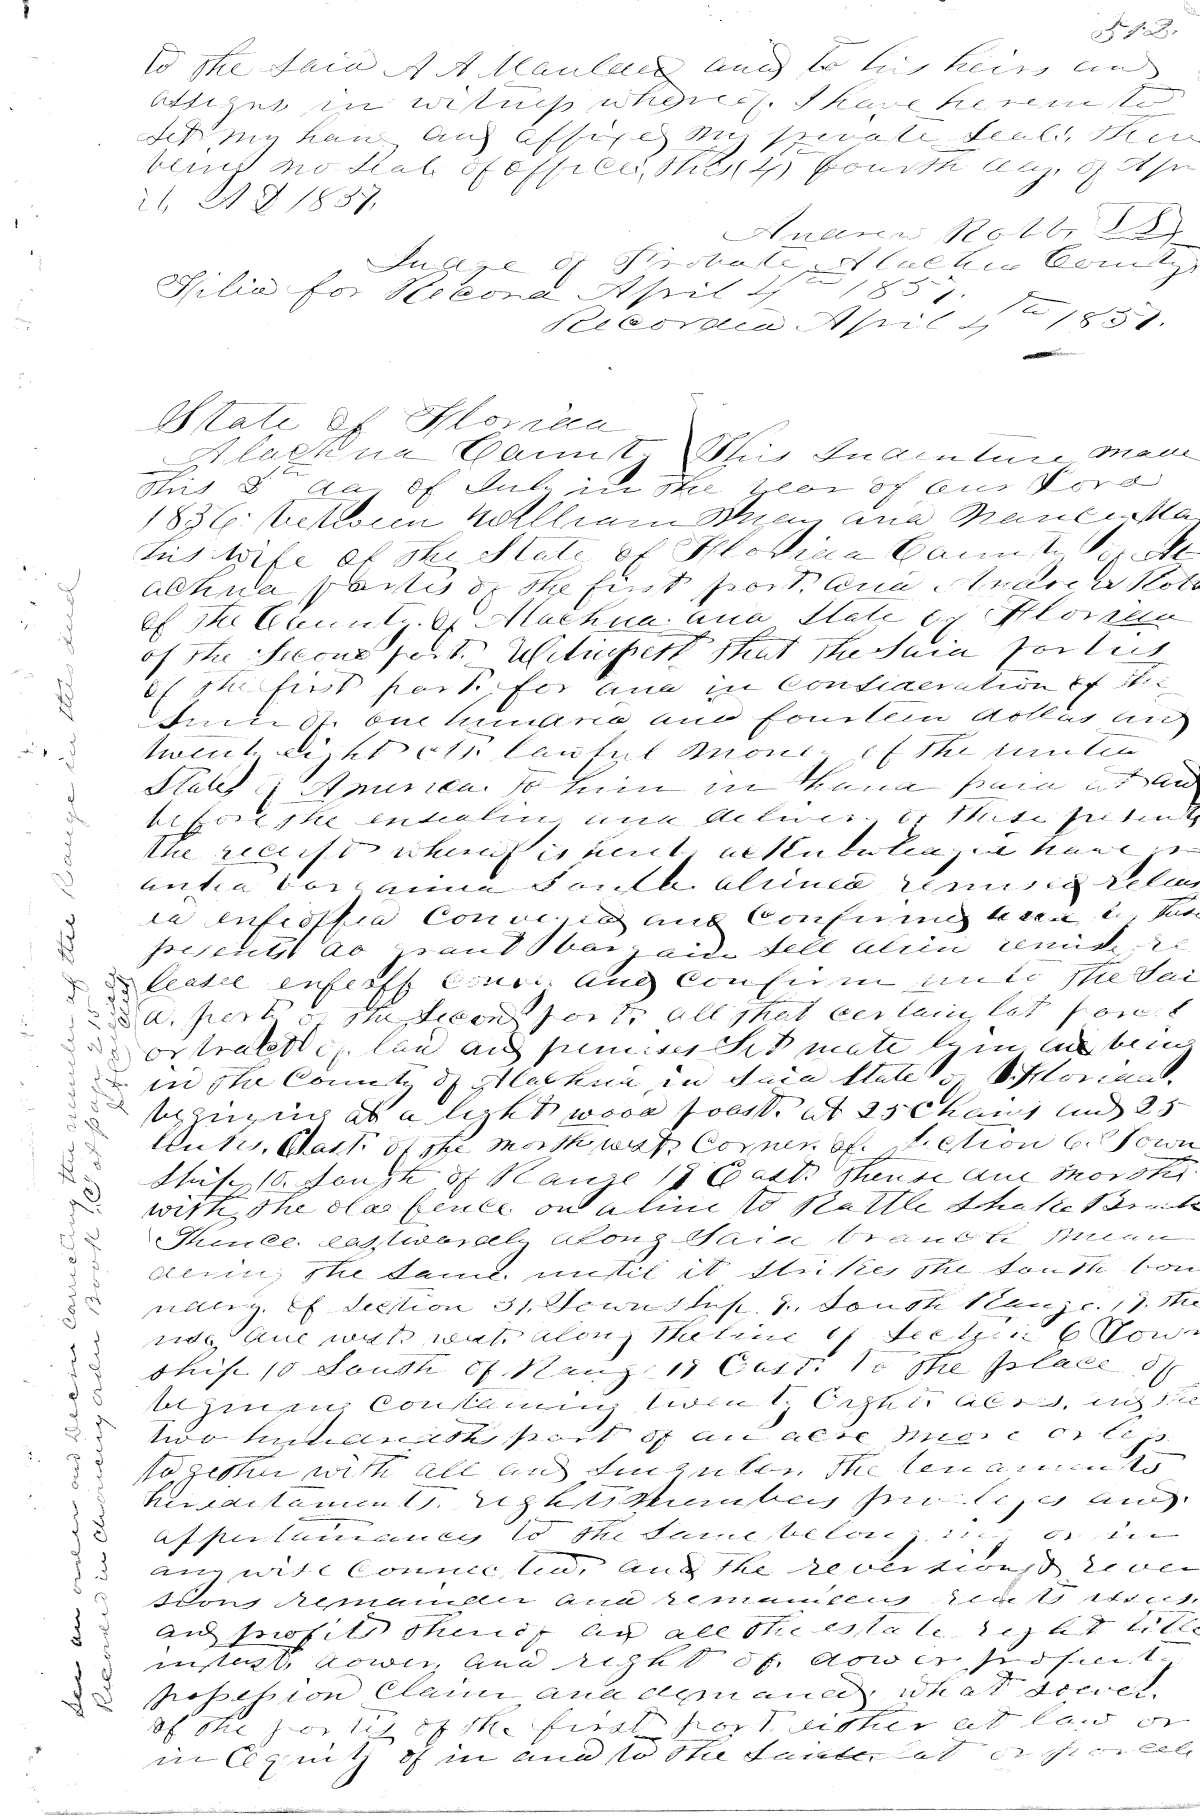 512.
to the said A A Mauldee and to his heirs and
assigns in witness whereof. I have hereunto
set my hand and affixed my private seal, there
being no seal of office, this (4th) fourth day, of Apr
il, A D 1857.
Andrew Robb, LS
Judge of Probate, Alachua County,
Filed for Record April 4th 1857.
Recorded April 4th 1857.
State of Florida
Alachua County This Indenture made
this 8th day of July in the year of our Lord
1856. between William May and Nancy May
his wife of the State of Florida County of Al
achua parties of the first part. and Andrew Robb
of the County. of Alachua. and State of Florida
of the Second part. Witnesseth, that the said parties
of the first part. for and in consideration of the
sum of. one hundred and fourteen dollas and
twenty eight cts. lawful money of the united
States of America. to him in hand paid at and
before the ensealing and delivery of these presents
the receipt whereof is hereby acknowledged have gr
anted bargained sould. aliened remised releas
ed enfeoffed conveyed and confirmed and by these
presents do grant bargain sell alien remise re
leasee enfeoff convey and confirm unto the Sai
d. party of the Second part. all that certain lot parcel
or tract of. land and premises Sit uate lying and being
in the County of Alachua, in said State of Florida.
begining at a light wood poast. at 25 Chains and 25
links. East. of the north west. corner. of. Section 6. Town
ship 10. South of Range 19 East. thense due north.
with the old fence on a line to Rattle Snake Branch
Thence. eastwardly along said branch mean
dering the same. until it strikes the south bou
ndery. of Section 31, Township. 9. South Range. 19. the
nse, due west. west. along the line of Section 6 Town
ship 10 South of Rang 19 East. to the place of
begining containing twenty Eight. acres. and the
two hundredths part of an acre more or less
together with all and singuler. the tenaments
hereditaments. rights members priveleges and.
appertainances to the same belonging or in
any wise connected, and the reversion & rever
sions remainder and remainders rents issues.
and profits thereof and all the estate right title
intrest. dower. and right of. dower, property
possession claim and demand. what soever.
of the parties of the first part. either at law or
in Equity of in and to the said. lot or parcele
See an order and decree correcting the number of the Range in this deed
Recorded in Chancery order Book "C" at page 215